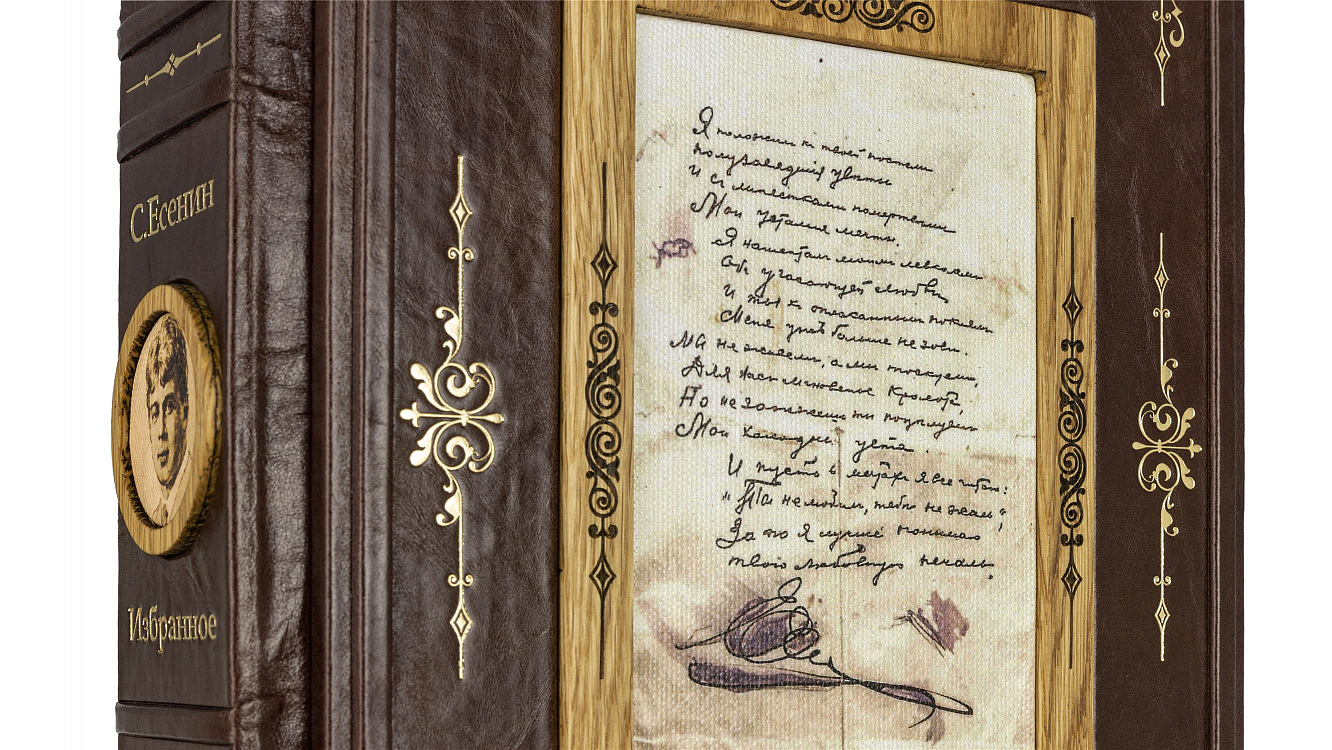 С.Есенин
Избранное
Я положил къ твоей постели
полузавядшія цвѣты
И съ лепестками помертвели
Мои усталыя мечты.
Я нашептал моим левкоям
Объ угасающей любви
И ты къ оплаканным покоям
Меня уж больше не зови.
Мы не живем, а мы тоскуем,
Для насъ мгновенье Красота,
Но не зажжешь ты поцелуем
Мои холодныя уста.
И пусть в мечтах я все читаю:
"Ты не любил, тебѣ не жаль",
За то я лучше понимаю
твою любовную печаль.